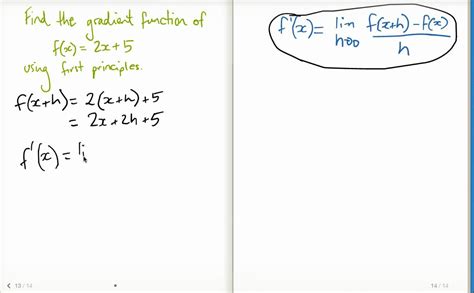 Find the gradient function of
f(x) = 2x + 5
using first principles.
f(x+h) = 2(x+h)+5
= 2x+2h+5
f'(x) = li
f'(x) = lim f(x+h) - f(x)
h→0 h
13 / 14
14 / 14